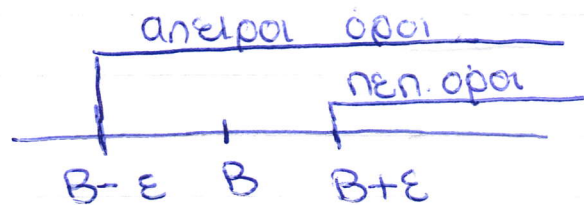 απειροι οροι
πεπ. οροι
B-ε B B+ε